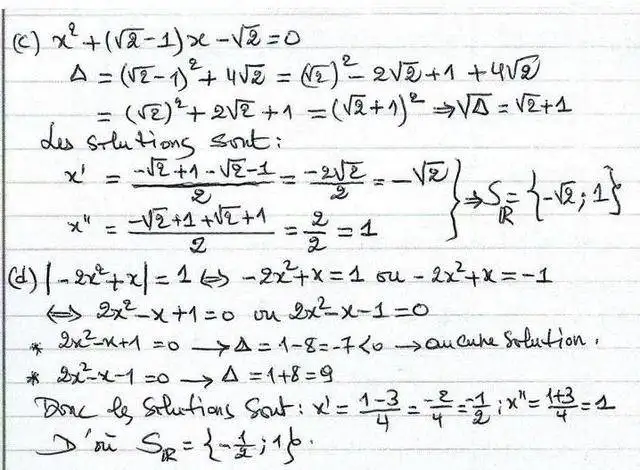 (c) x² + (√2 - 1)x - √2 = 0
Δ = (√2 - 1)² + 4√2 = (√2)² - 2√2 + 1 + 4√2
= (√2)² + 2√2 + 1 = (√2 + 1)² ⇒ √Δ = √2 + 1
Les solutions sont :
x' = (-√2 + 1 - √2 - 1)/2 = -2√2/2 = -√2
x" = (-√2 + 1 + √2 + 1)/2 = 2/2 = 1 } ⇒ S_ℝ = {-√2 ; 1}
(d) |-2x² + x| = 1 ⇔ -2x² + x = 1 ou -2x² + x = -1
⇔ 2x² - x + 1 = 0 ou 2x² - x - 1 = 0
* 2x² - x + 1 = 0 → Δ = 1 - 8 = -7 < 0 → aucune solution.
* 2x² - x - 1 = 0 → Δ = 1 + 8 = 9
Donc les solutions sont : x' = (1 - 3)/4 = -2/4 = -1/2 ; x" = (1 + 3)/4 = 1
D'où S_ℝ = {-1/2 ; 1}.